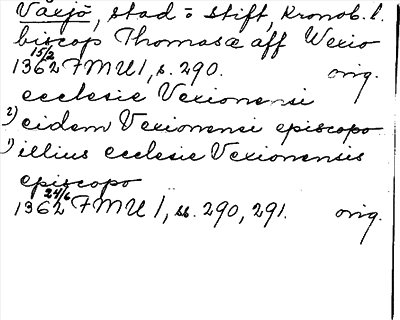 Växjö, stad o stift, Kronob. l.
biscop Thomas aff Wexio
15/2
1362 FMU 1, s. 290. orig.
ecclesie Vexionensi
2) eidem Vexionensi episcopo
1) illius ecclesie Vexionensis
episcopo
24/6
1362 FMU 1, ss. 290, 291. orig.